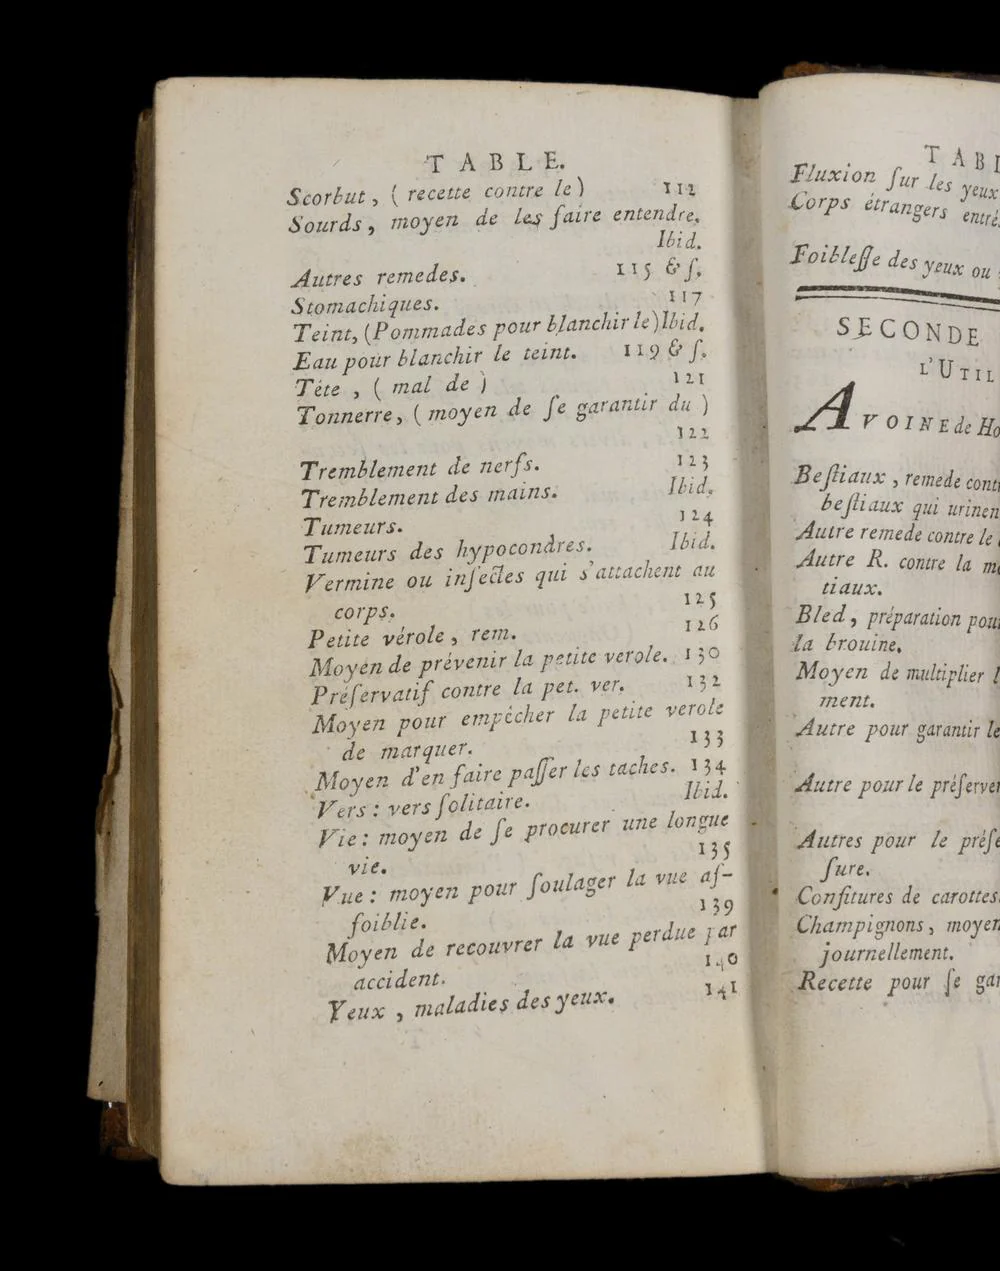 TABLE.
Scorbut, ( recette contre le ) 112
Sourds, moyen de les faire entendre,
Ibid.
Autres remedes. 115 & ſ.
Stomachiques. 117
Teint, (Pommades pour blanchir le) Ibid.
Eau pour blanchir le teint. 119 & ſ.
Tête , ( mal de ) 121
Tonnerre, ( moyen de ſe garantir du )
122
Tremblement de nerfs. 123
Tremblement des mains. Ibid.
Tumeurs. 124
Tumeurs des hypocondres. Ibid.
Vermine ou inſectes qui s'attachent au
corps. 125
Petite vérole, rem. 126
Moyen de prévenir la petite verole. 130
Préſervatif contre la pet. ver. 132
Moyen pour empêcher la petite verole
de marquer. 133
Moyen d'en faire paſſer les taches. 134
Vers : vers ſolitaire. Ibid.
Vie : moyen de ſe procurer une longue
vie. 135
Vue : moyen pour ſoulager la vue aſ-
foiblie. 139
Moyen de recouvrer la vue perdue par
accident. 140
Yeux , maladies des yeux. 141
TAB
Fluxion ſur les yeux
Corps étrangers entré
Foibleſſe des yeux ou
SECONDE
L'UTIL
AVOINE de Ho
Beſtiaux , remede cont
beſtiaux qui urinen
Autre remede contre le
Autre R. contre la
tiaux.
Bled , préparation pou
la brouine.
Moyen de multiplier
ment.
Autre pour garantir le
Autre pour le préſerver
Autres pour le préſe
ſure.
Confitures de carottes
Champignons, moyen
journellement.
Recette pour ſe gar